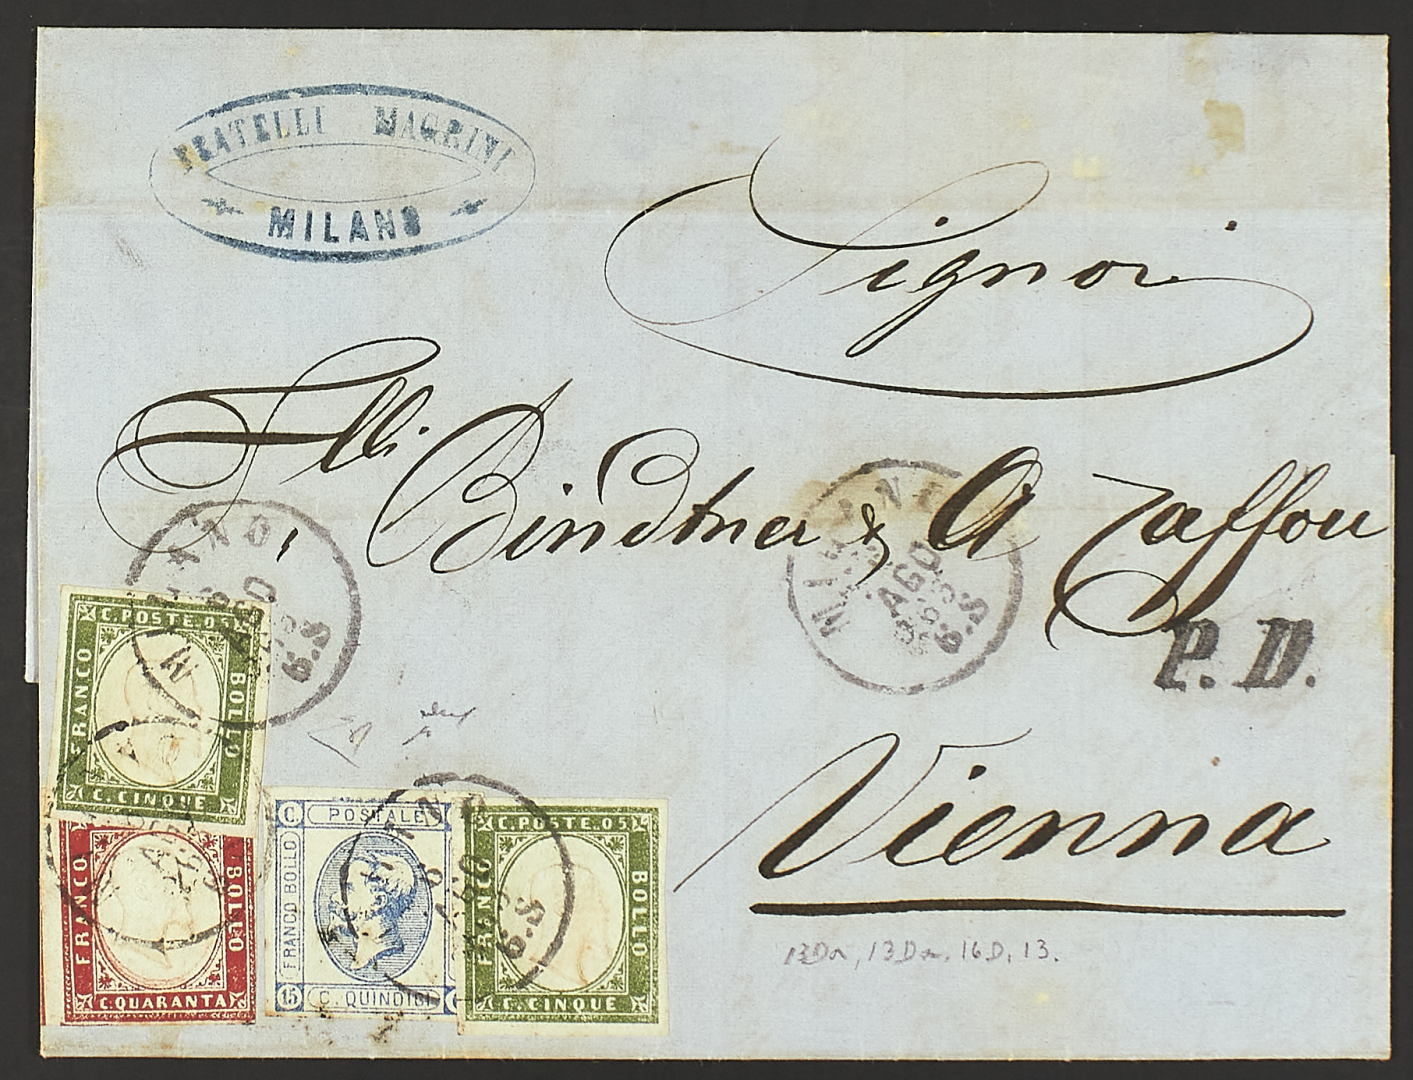 FRATELLI MAGRINI
MILANO
Signori
Flli Bindtner & A Zaffou
MILANO
AGO
6.S
MILANO
6
AGO
6.S
P. D.
Vienna
C. POSTE. 05
FRANCO
BOLLO
C. CINQUE
FRANCO
BOLLO
C. QUARANTA
C.
POSTALE
FRANCO BOLLO
15
C. QUINDICI
6
AGO
6.S
C. POSTE. 05
FRANCO
BOLLO
C. CINQUE
13Da, 13Da, 16D, 13.